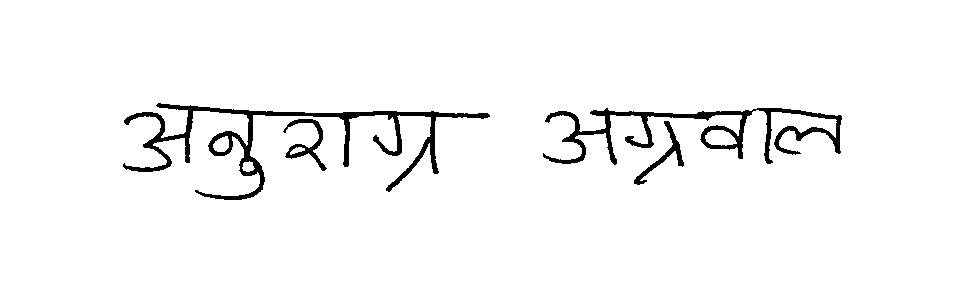 अनुराग्र अग्रवाल